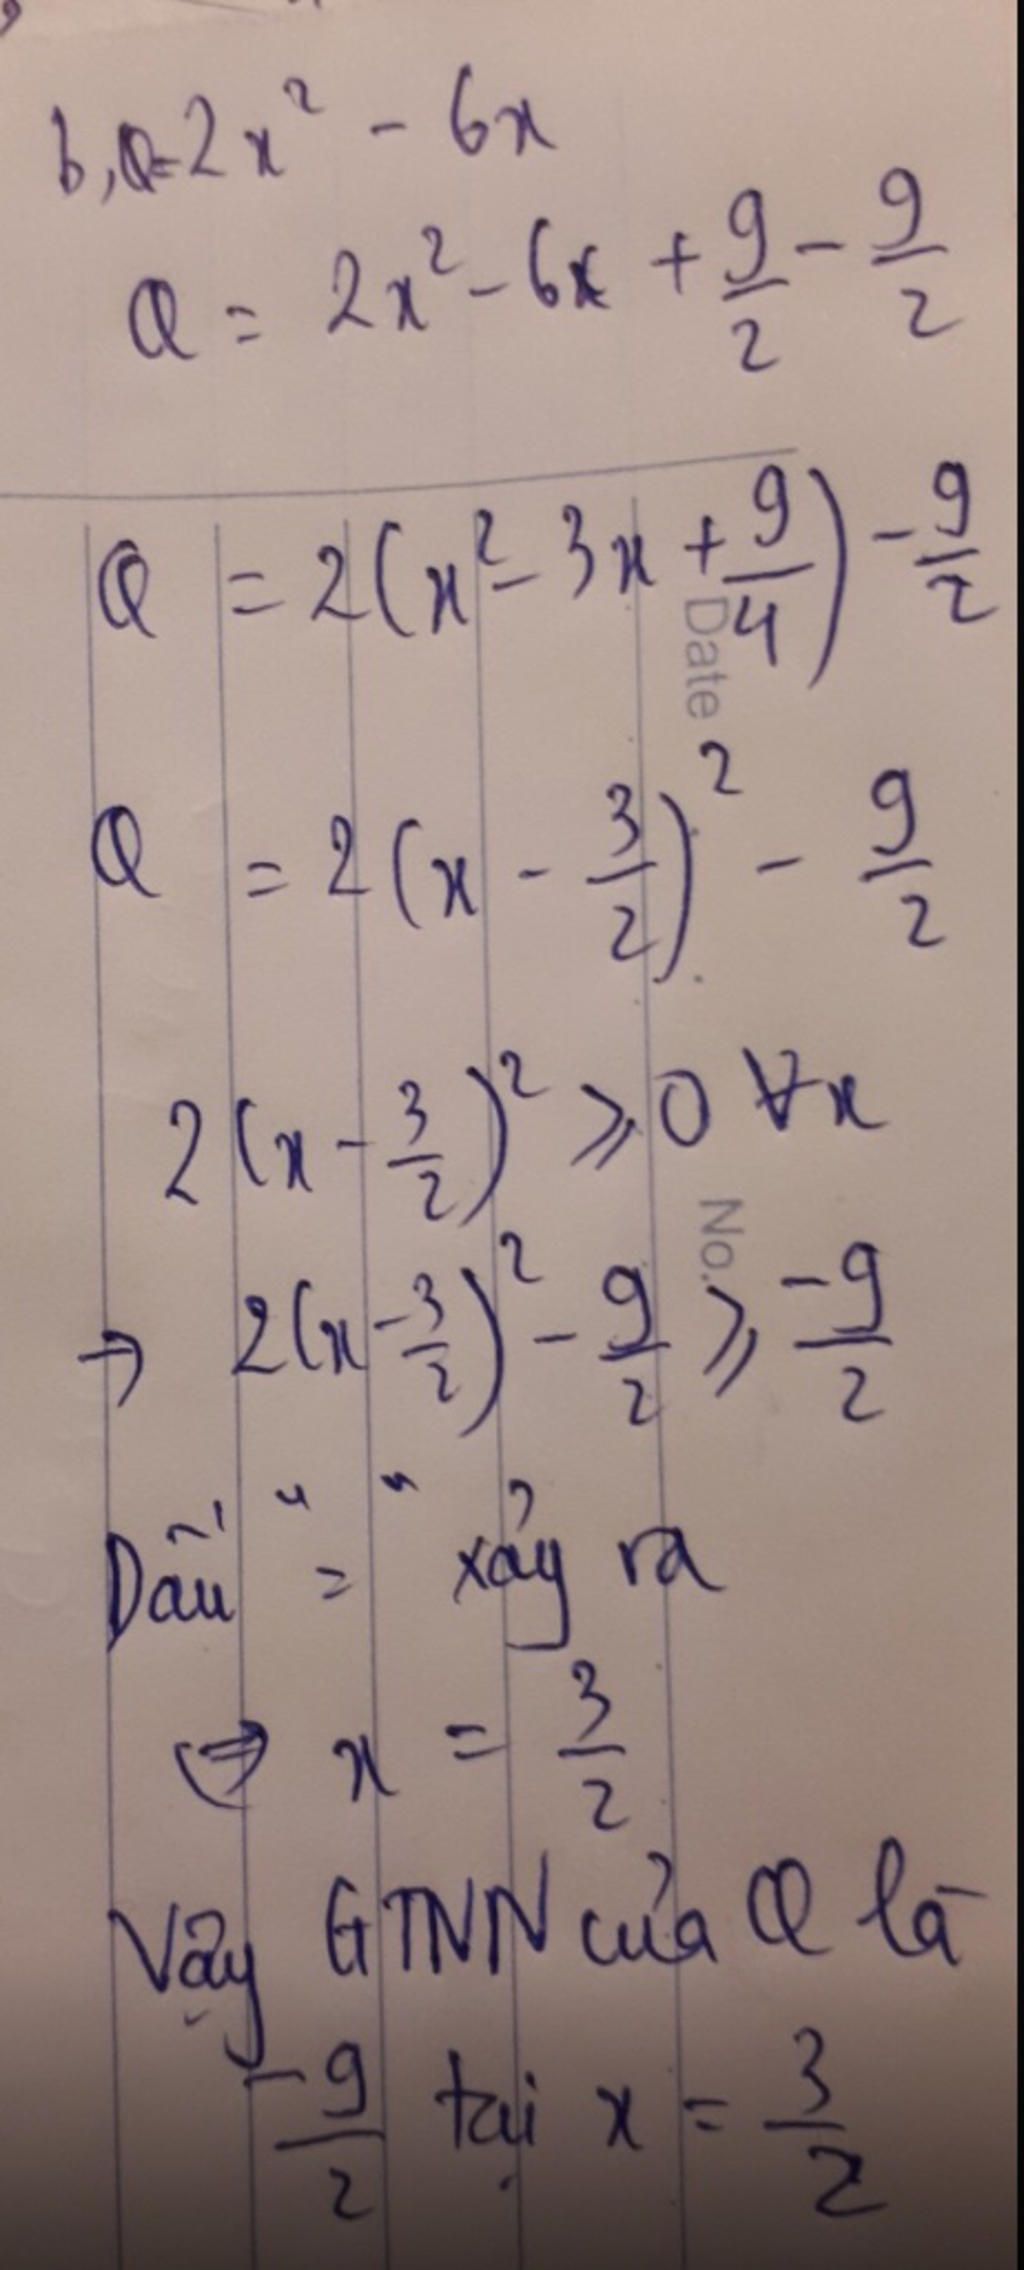 b, Q=2x² - 6x
Q = 2x² - 6x + 9/2 - 9/2
Q = 2(x² - 3x + 9/4) - 9/2
Date
Q = 2(x - 3/2)² - 9/2
2(x - 3/2)² ⩾ 0 ∀x
No.
→ 2(x - 3/2)² - 9/2 ⩾ -9/2
Dấu "=" xảy ra
⇔ x = 3/2
Vậy GTNN của Q là
-9/2 tại x = 3/2